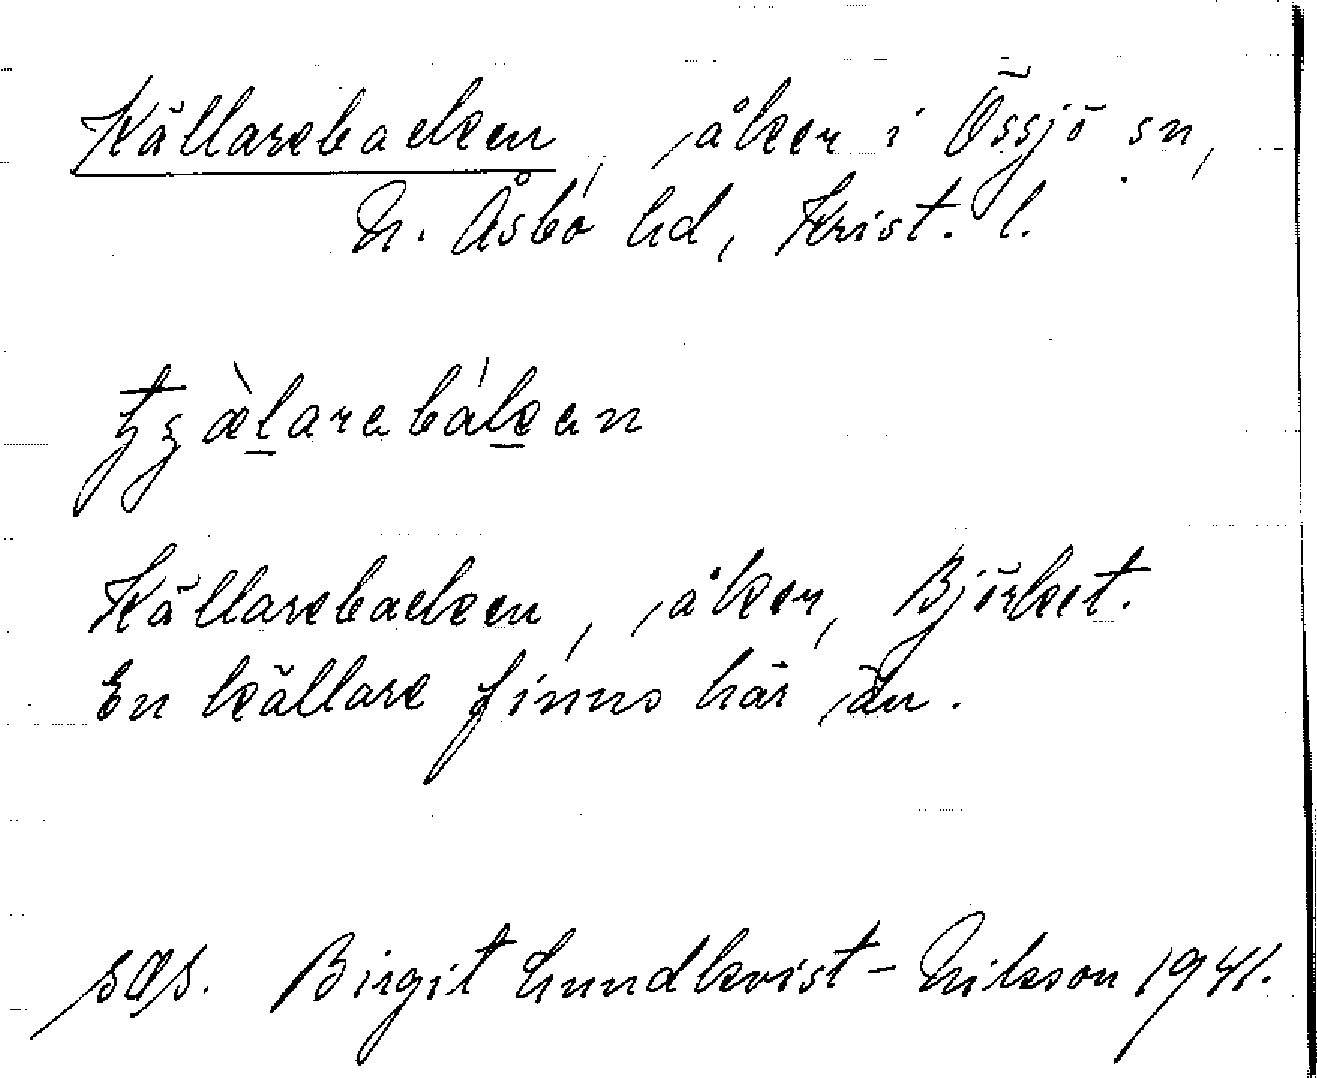 Källarebacken, åker i Össjö sn,
N. Åsbo hd, Krist. l.
Källarebacken, åker, Björket.
En källare finns här än.
Birgit Lundkvist-Nilsson 1941.